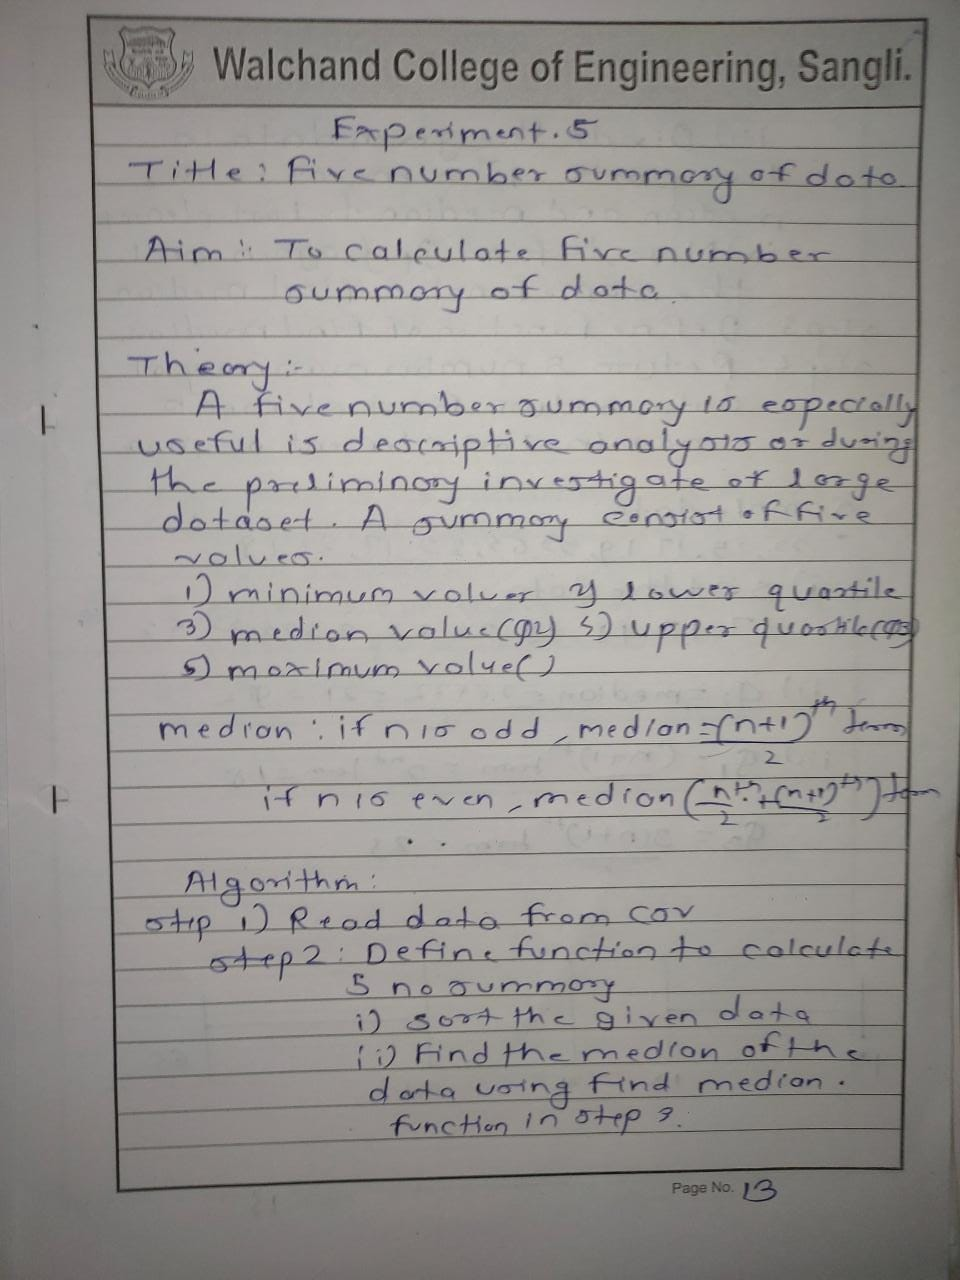 Walchand College of Engineering, Sangli.
Experiment. 5
Title: Five number summary of data
Aim :- To calculate five number
summary of data.
Theory :-
A five number summary is especially
useful is descriptive analysis or during
the preliminary investigate of large
dataset. A summary consist of five
values.
1) minimum values 2) lower quartile
3) median value (Q2) 4) upper quartile (Q3)
5) maximum value ( )
median : if n is odd, median = (n+1)th term
2
if n is even, median (nth + (n+1)th) term
2 2
Algorithm :
step 1) Read data from csv
step 2 : Define function to calculate
5 no summary
i) sort the given data
ii) Find the median of the
data using find median.
function in step 3.
Page No. 13